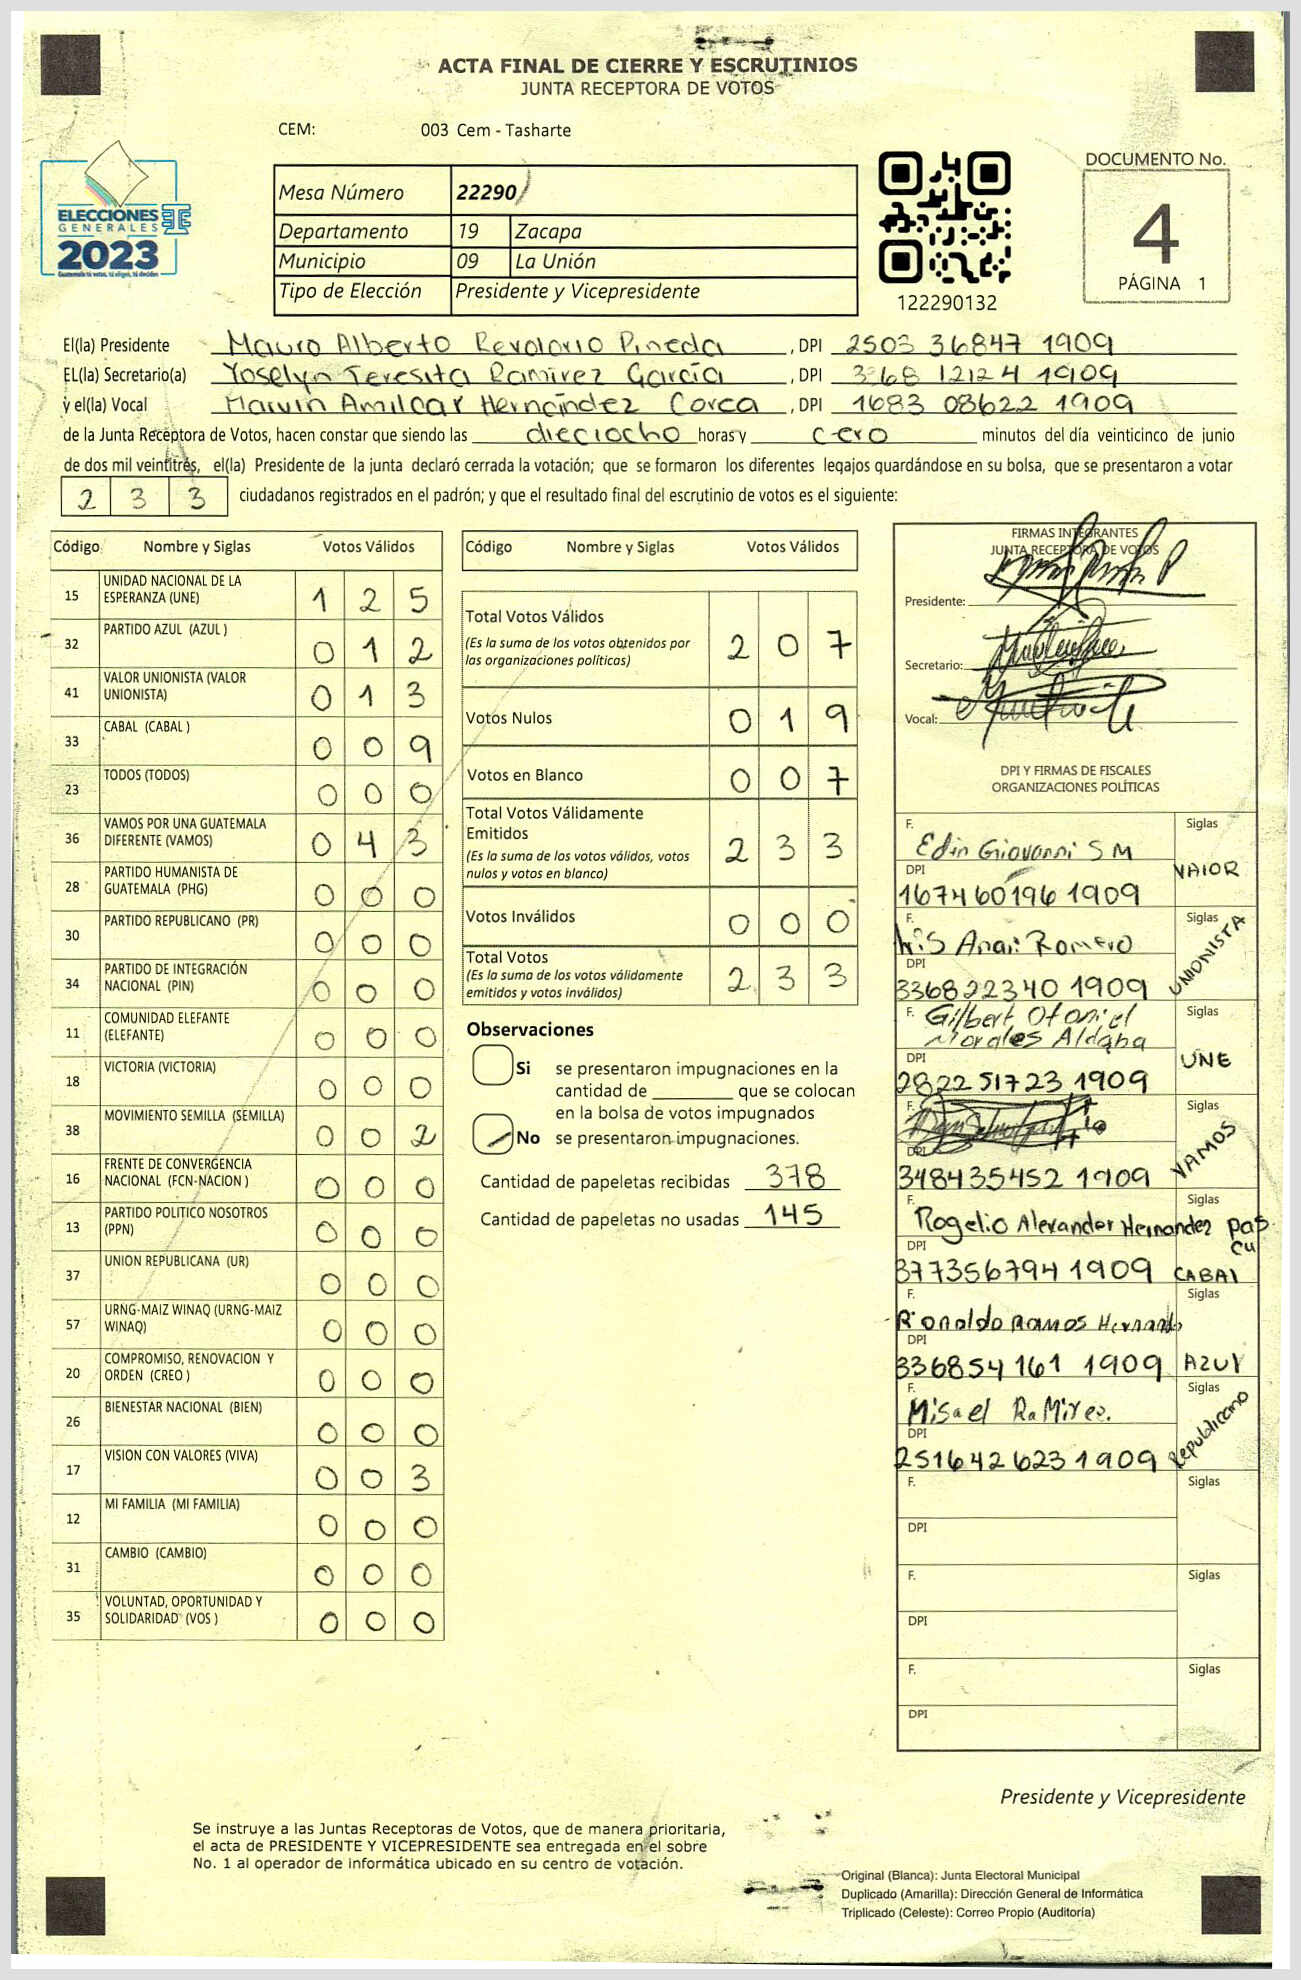 ACTA FINAL DE CIERRE Y ESCRUTINIOS
JUNTA RECEPTORA DE VOTOS
CEM: 003 Cem - Tasharte
ELECCIONES
GENERALES
2023
Mesa Número 22290
Departamento 19 Zacapa
Municipio 09 La Unión
Tipo de Elección Presidente y Vicepresidente
122290132
DOCUMENTO No.
4
PÁGINA 1
El(la) Presidente Mauro Alberto Revolorio Pineda, DPI 2503 36847 1909
EL(la) Secretario(a) Yoselyn Teresita Ramirez García, DPI 3368 12124 1909
y el(la) Vocal Marvin Amilcar Hernández Corea, DPI 1683 08622 1909
de la Junta Receptora de Votos, hacen constar que siendo las dieciocho horas y cero minutos del día veinticinco de junio
de dos mil veintitrés, el(la) Presidente de la junta declaró cerrada la votación; que se formaron los diferentes legajos guardándose en su bolsa, que se presentaron a votar
2 3 3 ciudadanos registrados en el padrón; y que el resultado final del escrutinio de votos es el siguiente:
Código Nombre y Siglas Votos Válidos
15 UNIDAD NACIONAL DE LA ESPERANZA (UNE) 1 2 5
32 PARTIDO AZUL (AZUL ) 0 1 2
41 VALOR UNIONISTA (VALOR UNIONISTA) 0 1 3
33 CABAL (CABAL ) 0 0 9
23 TODOS (TODOS) 0 0 0
36 VAMOS POR UNA GUATEMALA DIFERENTE (VAMOS) 0 4 3
28 PARTIDO HUMANISTA DE GUATEMALA (PHG) 0 0 0
30 PARTIDO REPUBLICANO (PR) 0 0 0
34 PARTIDO DE INTEGRACIÓN NACIONAL (PIN) 0 0 0
11 COMUNIDAD ELEFANTE (ELEFANTE) 0 0 0
18 VICTORIA (VICTORIA) 0 0 0
38 MOVIMIENTO SEMILLA (SEMILLA) 0 0 2
16 FRENTE DE CONVERGENCIA NACIONAL (FCN-NACION ) 0 0 0
13 PARTIDO POLITICO NOSOTROS (PPN) 0 0 0
37 UNION REPUBLICANA (UR) 0 0 0
57 URNG-MAIZ WINAQ (URNG-MAIZ WINAQ) 0 0 0
20 COMPROMISO, RENOVACION Y ORDEN (CREO ) 0 0 0
26 BIENESTAR NACIONAL (BIEN) 0 0 0
17 VISION CON VALORES (VIVA) 0 0 3
12 MI FAMILIA (MI FAMILIA) 0 0 0
31 CAMBIO (CAMBIO) 0 0 0
35 VOLUNTAD, OPORTUNIDAD Y SOLIDARIDAD (VOS ) 0 0 0
Código Nombre y Siglas Votos Válidos
Total Votos Válidos 2 0 7
(Es la suma de los votos obtenidos por
las organizaciones políticas)
Votos Nulos 0 1 9
Votos en Blanco 0 0 7
Total Votos Válidamente
Emitidos 2 3 3
(Es la suma de los votos válidos, votos
nulos y votos en blanco)
Votos Inválidos 0 0 0
Total Votos 2 3 3
(Es la suma de los votos válidamente
emitidos y votos inválidos)
Observaciones
Si se presentaron impugnaciones en la
cantidad de que se colocan
en la bolsa de votos impugnados
No se presentaron impugnaciones.
Cantidad de papeletas recibidas 378
Cantidad de papeletas no usadas 145
FIRMAS INTEGRANTES
JUNTA RECEPTORA DE VOTOS
Presidente:
Secretario:
Vocal:
DPI Y FIRMAS DE FISCALES
ORGANIZACIONES POLÍTICAS
F. Edin Giovanni S M Siglas
DPI 167460196 1909 VAIOR
F. Iris Anai Romero Siglas
DPI 336822340 1909 UNIONISTA
F. Gilbert Otoniel Siglas
Morales Aldana
DPI 2822 51723 1909 UNE
F. Siglas
DPI 348435452 1909 VAMOS
F. Rogelio Alexander Hernandez pas Siglas
cu
DPI 377356794 1909 CABAl
F. Ronaldo Ramos Hernand Siglas
DPI 336854161 1909 AZUl
F. Misael RaMirez. Siglas
DPI 251642623 1909 Republicano
F. Siglas
DPI
F. Siglas
DPI
F. Siglas
DPI
Presidente y Vicepresidente
Se instruye a las Juntas Receptoras de Votos, que de manera prioritaria,
el acta de PRESIDENTE Y VICEPRESIDENTE sea entregada en el sobre
No. 1 al operador de informática ubicado en su centro de votación.
Original (Blanca): Junta Electoral Municipal
Duplicado (Amarilla): Dirección General de Informática
Triplicado (Celeste): Correo Propio (Auditoría)